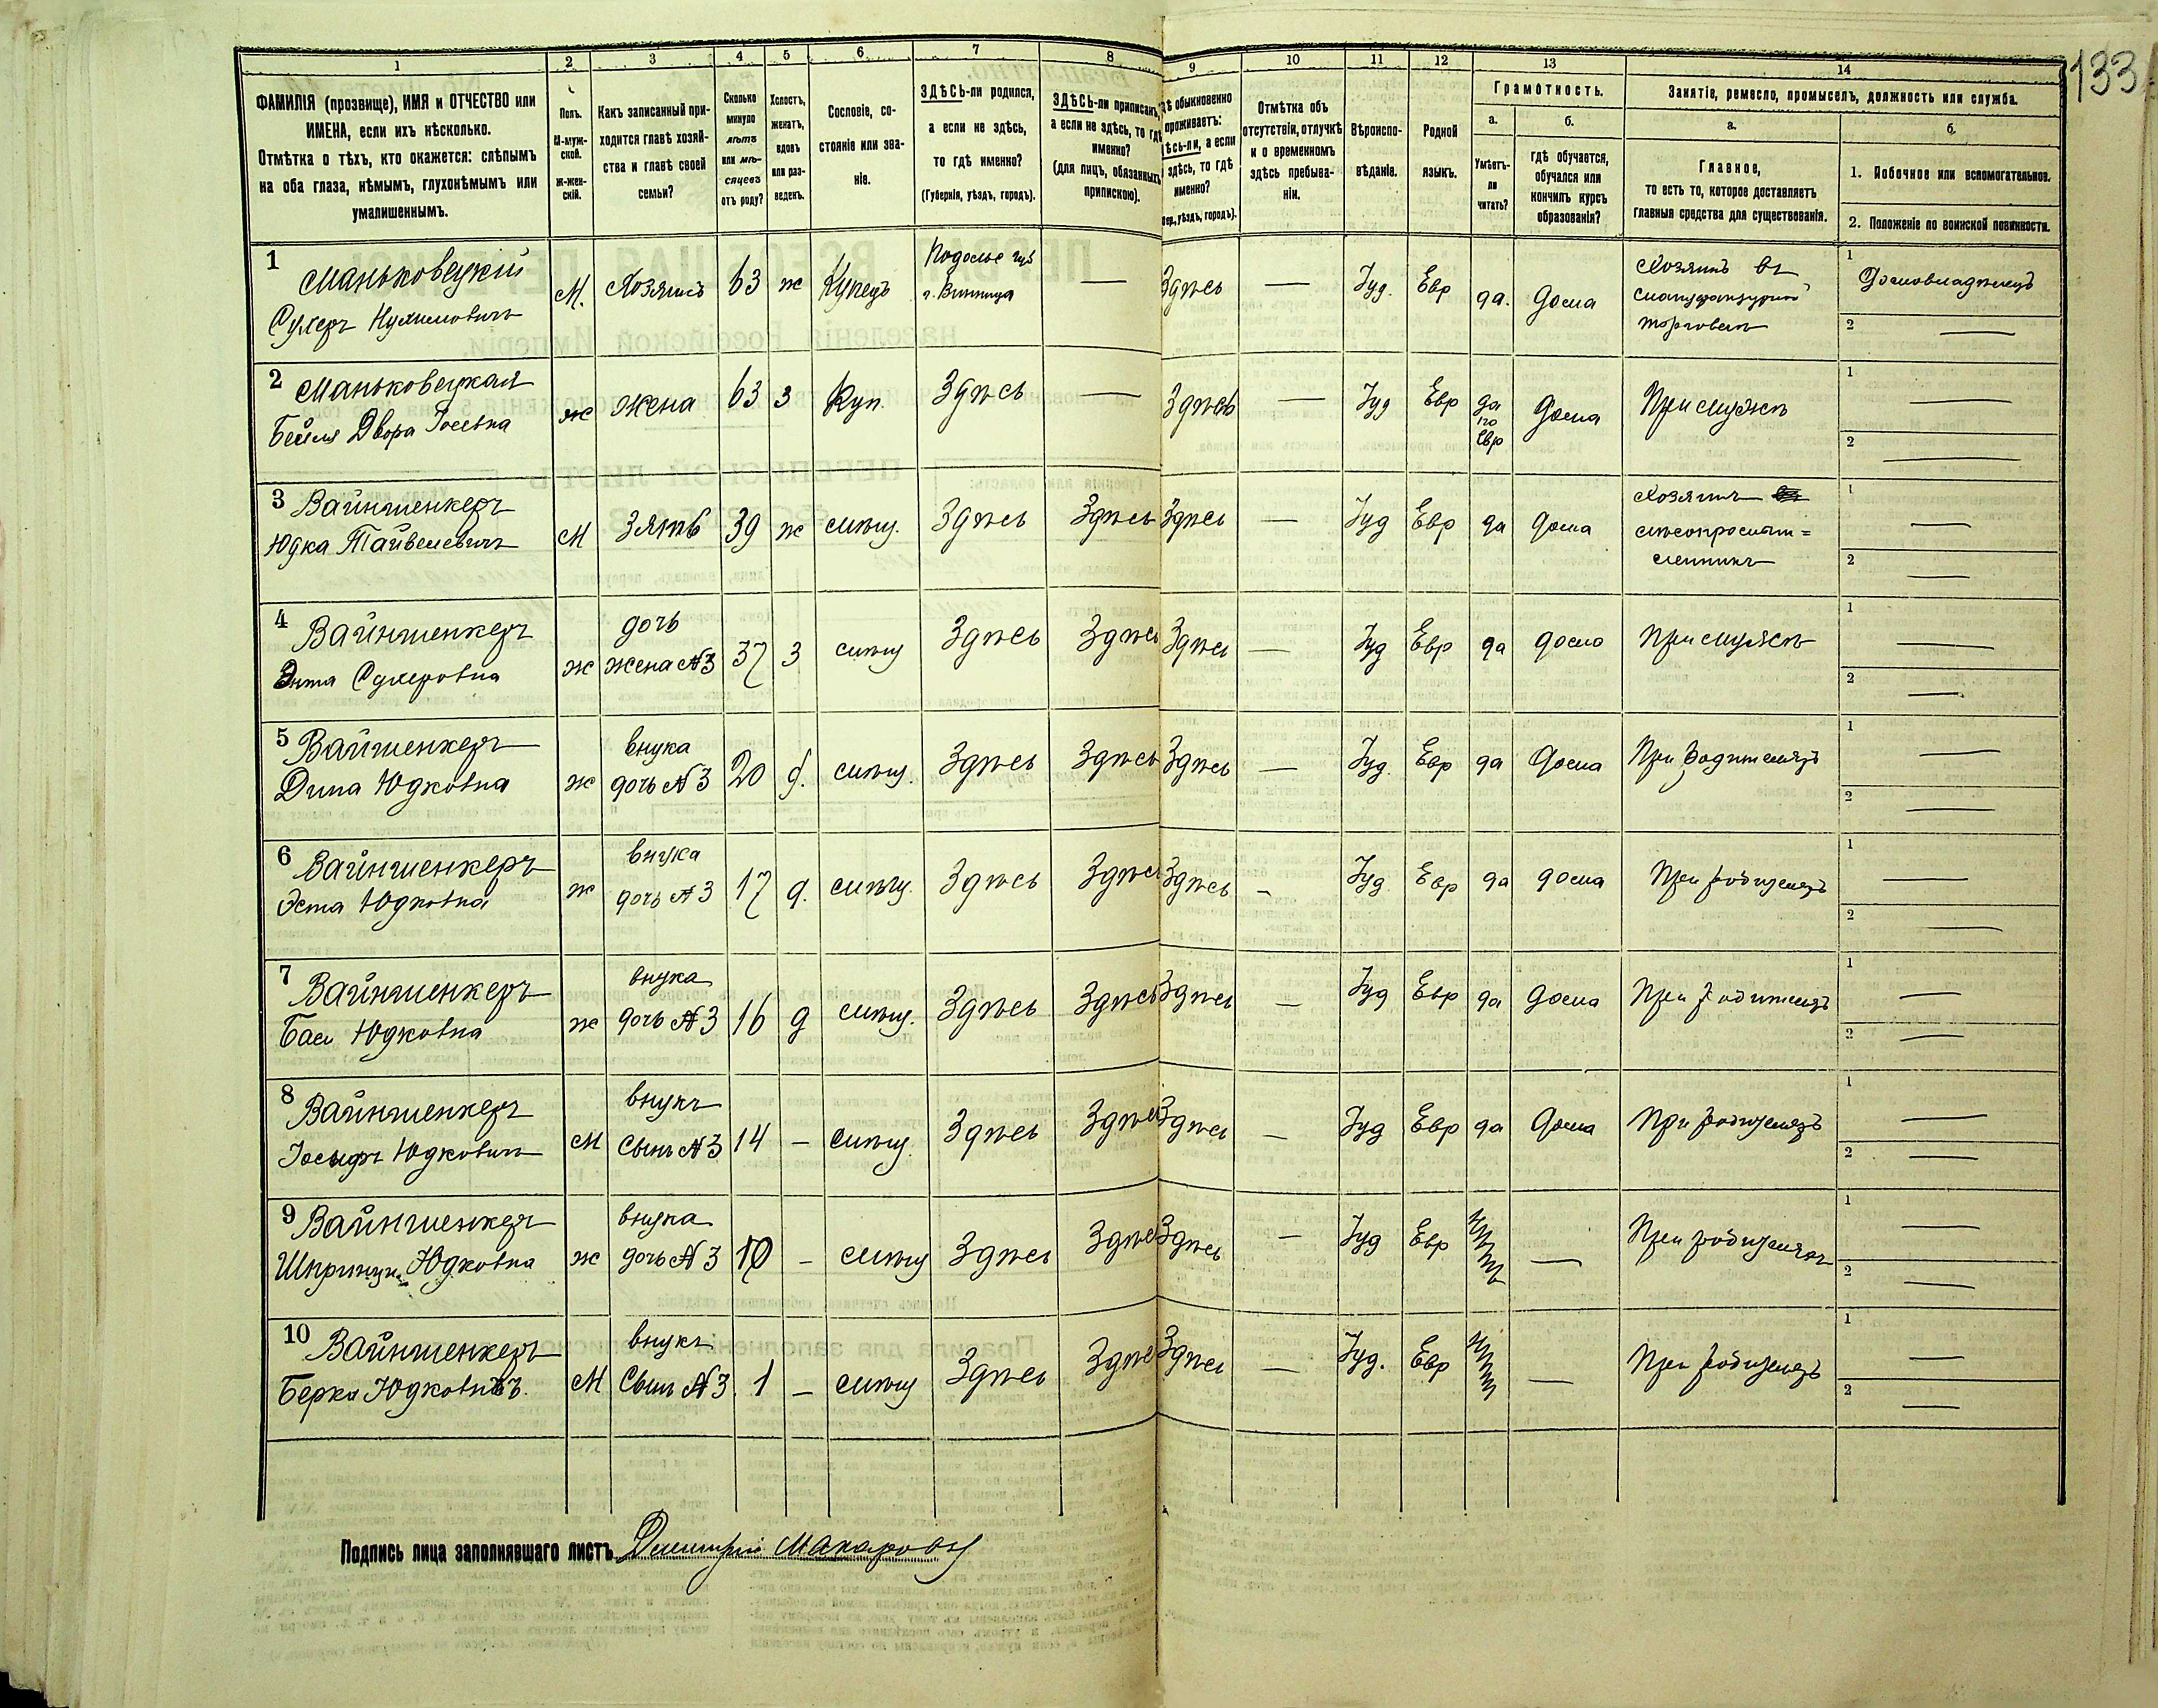 133
1
2
3
4
5
6
7
8
9
10
11
12
13
14
ФАМИЛІЯ (прозвище), ИМЯ и ОТЧЕСТВО или
ИМЕНА, если ихъ нѣсколько.
Отмѣтка о тѣхъ, кто окажется: слѣпымъ
на оба глаза, нѣмымъ, глухонѣмымъ или
умалишеннымъ.
Полъ.
М-муж-
ской.
Ж-жен-
скій.
Какъ записанный при-
ходится главѣ хозяй-
ства и главѣ своей
семьи?
Сколько
минуло
лѣтъ
или мѣ-
сяцевъ
отъ роду?
Холостъ,
женатъ,
вдовъ
или раз-
веденъ.
Сословіе, со-
стояніе или зва-
ніе.
ЗДѢСЬ-ли родился,
а если не здѣсь,
то гдѣ именно?
(Губернія, уѣздъ, городъ).
ЗДѢСЬ-ли приписанъ,
а если не здѣсь, то гдѣ
именно?
(для лицъ, обязанныхъ
припискою).
обыкновенно
проживаетъ:
а если
здѣсь, то гдѣ
именно?
уѣздъ, городъ).
Отмѣтка объ
отсутствіи, отлучкѣ
и о временномъ
здѣсь пребыва-
ніи.
Вѣроиспо-
вѣданіе.
Родной
языкъ.
Грамотность.
а.
Умѣетъ-
ли
читать?
б.
гдѣ обучается,
обучался или
кончилъ курсъ
образованія?
Занятіе, ремесло, промыселъ, должность или служба.
а.
Главное,
то есть то, которое доставляетъ
главныя средства для существованія.
б.
1. Побочное или вспомогательное.
2. Положеніе по воинской повинности.
1 Маньковецкій
Сухеръ Нухимовичъ
М.
Хозяинъ
63
ж
Купецъ
Подольс губ
г. Винница
—
Здѣсь
—
Іуд.
Евр
да.
дома
Хозяинъ въ
мануфактурной
торговли
1
Домовладѣлецъ
2
—
2 Маньковецкая
Бейля Двора Іосевна
ж
жена
63
з
Куп.
Здѣсь
—
Здѣсь
—
Іуд
Евр
да
по
Евр
дома
При мужѣ
1
—
2
—
3 Вайншенкеръ
Юдка Тайвелевичъ
М
Зять
39
ж
мѣщ.
Здѣсь
Здѣсь
Здѣсь
—
Іуд
Евр
да
дома
Хозяинъ
1
—
2
—
4 Вайншенкеръ
Энта Сухеровна
ж
дочь
жена №3
37
з
мѣщ
Здѣсь
Здѣсь
Здѣсь
—
Іуд
Евр
да
дома
При мужѣ
1
—
2
—
5 Вайншенкеръ
Дина Юдковна
ж
внука
дочь №3
20
д.
мѣщ.
Здѣсь
Здѣсь
Здѣсь
—
Іуд.
Евр
да
дома
При родителяхъ
1
—
2
—
6 Вайншенкеръ
Эста Юдковна
ж
внука
дочь №3
17
д.
мѣщ.
Здѣсь
Здѣсь
Здѣсь
-
Іуд
Евр
да
дома
При родителяхъ
1
—
2
—
7 Вайншенкеръ
Бася Юдковна
ж
внука
дочь №3
16
д
мѣщ.
Здѣсь
Здѣсь
Здѣсь
—
Іуд
Евр
да
дома
При родителяхъ
1
—
2
—
8 Вайншенкеръ
Іосыфъ Юдковичъ
М
внукъ
Сынъ №3
14
-
мѣщ.
Здѣсь
Здѣсь
Здѣсь
—
Іуд
Евр
да
дома
При родителяхъ
1
—
2
—
9 Вайншенкеръ
Шпринца Юдковна
ж
внука
дочь №3
10
-
мѣщ
Здѣсь
Здѣсь
Здѣсь
—
Іуд
Евр
нѣтъ
—
При родителяхъ
1
—
2
—
10 Вайншенкеръ
Берко Юдковичъ.
М
внукъ
Сынъ №3
1
-
мѣщ
Здѣсь
Здѣсь
Здѣсь
—
Іуд.
Евр
нѣтъ
—
При родителяхъ
1
—
2
—
Подпись лица заполнявшаго листъ Дмитрій Макаровъ